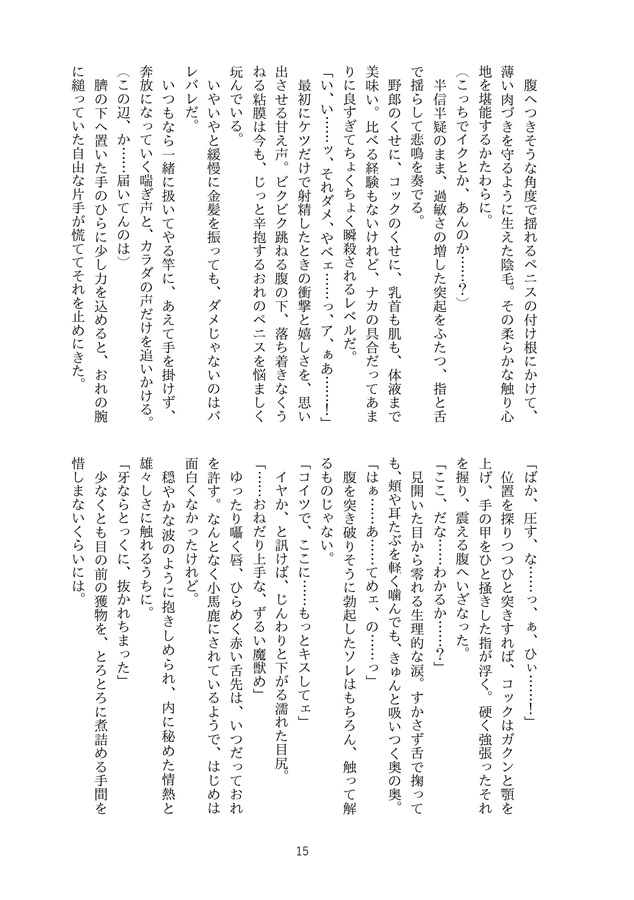 腹へつきそうな角度で揺れるペニスの付け根にかけて、
薄い肉づきを守るように生えた陰毛。その柔らかな触り心
地を堪能するかたわらに。
（こっちでイクとか、あんのか……？）
半信半疑のまま、過敏さの増した突起をふたつ、指と舌
で揺らして悲鳴を奏でる。
野郎のくせに、コックのくせに、乳首も肌も、体液まで
美味い。比べる経験もないけれど、ナカの具合だってあま
りに良すぎてちょくちょく瞬殺されるレベルだ。
「い、い……ッ、それダメ、やべェ……っ、ア、ぁあ……！」
最初にケツだけで射精したときの衝撃と嬉しさを、思い
出させる甘え声。ビクビク跳ねる腹の下、落ち着きなくう
ねる粘膜は今も、じっと辛抱するおれのペニスを悩ましく
玩んでいる。
いやいやと緩慢に金髪を振っても、ダメじゃないのはバ
レバレだ。
いつもなら一緒に扱いてやる竿に、あえて手を掛けず、
奔放になっていく喘ぎ声と、カラダの声だけを追いかける。
（この辺、か……届いてんのは）
臍の下へ置いた手のひらに少し力を込めると、おれの腕
に縋っていた自由な片手が慌ててそれを止めにきた。
「ばか、圧す、な……っ、ぁ、ひぃ……！」
位置を探りつつひと突きすれば、コックはガクンと顎を
上げ、手の甲をひと掻きした指が浮く。硬く強張ったそれ
を握り、震える腹へいざなった。
「ここ、だな……わかるか……？」
見開いた目から零れる生理的な涙。すかさず舌で掬って
も、頬や耳たぶを軽く噛んでも、きゅんと吸いつく奥の奥。
「はぁ……あ……てめェ、の……っ」
腹を突き破りそうに勃起したソレはもちろん、触って解
るものじゃない。
「コイツで、ここに……もっとキスしてェ」
イヤか、と訊けば、じんわりと下がる濡れた目尻。
「……おねだり上手な、ずるい魔獣め」
ゆったり囁く唇、ひらめく赤い舌先は、いつだっておれ
を許す。なんとなく小馬鹿にされているようで、はじめは
面白くなかったけれど。
穏やかな波のように抱きしめられ、内に秘めた情熱と
雄々しさに触れるうちに。
「牙ならとっくに、抜かれちまった」
少なくとも目の前の獲物を、とろとろに煮詰める手間を
惜しまないくらいには。
15